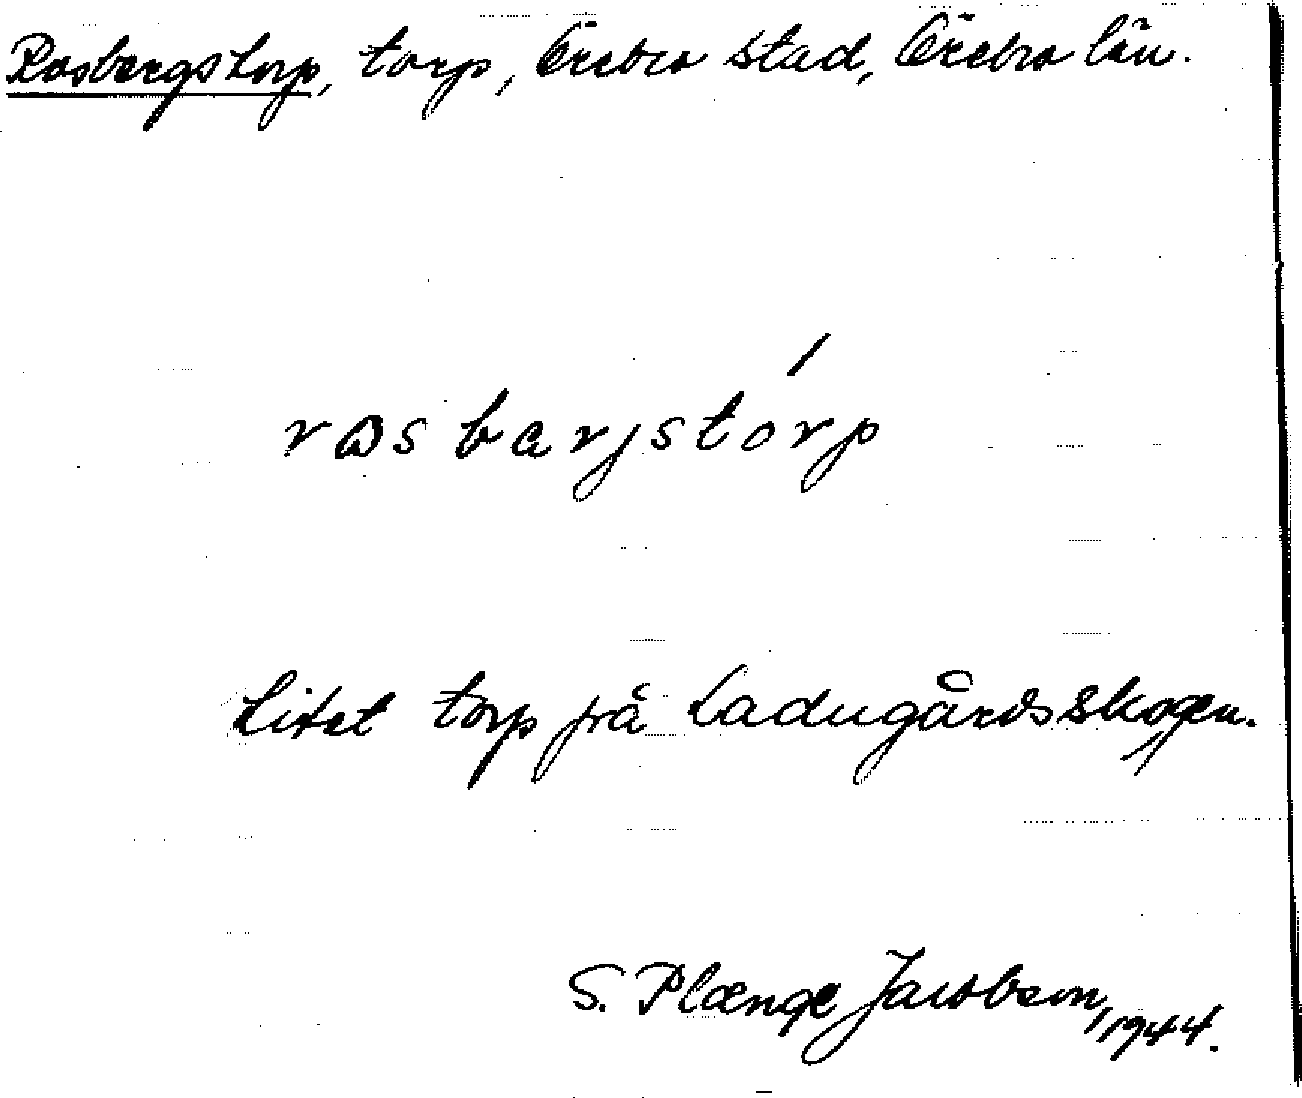 Rosbergstorp, torp, Örebro stad, Örebro län.
rosbarjstórp
Litet torp på Ladugårdsskogen.
S. Plænge Jacobson, 1944.